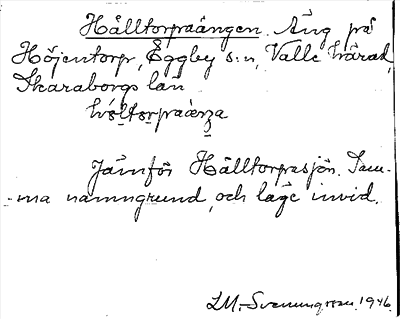 Hålltorpaängen. Äng på
Höjentorp, Eggby s:n, Valle härad,
Skaraborgs län
Jämför Hålltorpasjön. Sam-
-ma namngrund, och läge invid.
LM. Svenungsson. 1946.